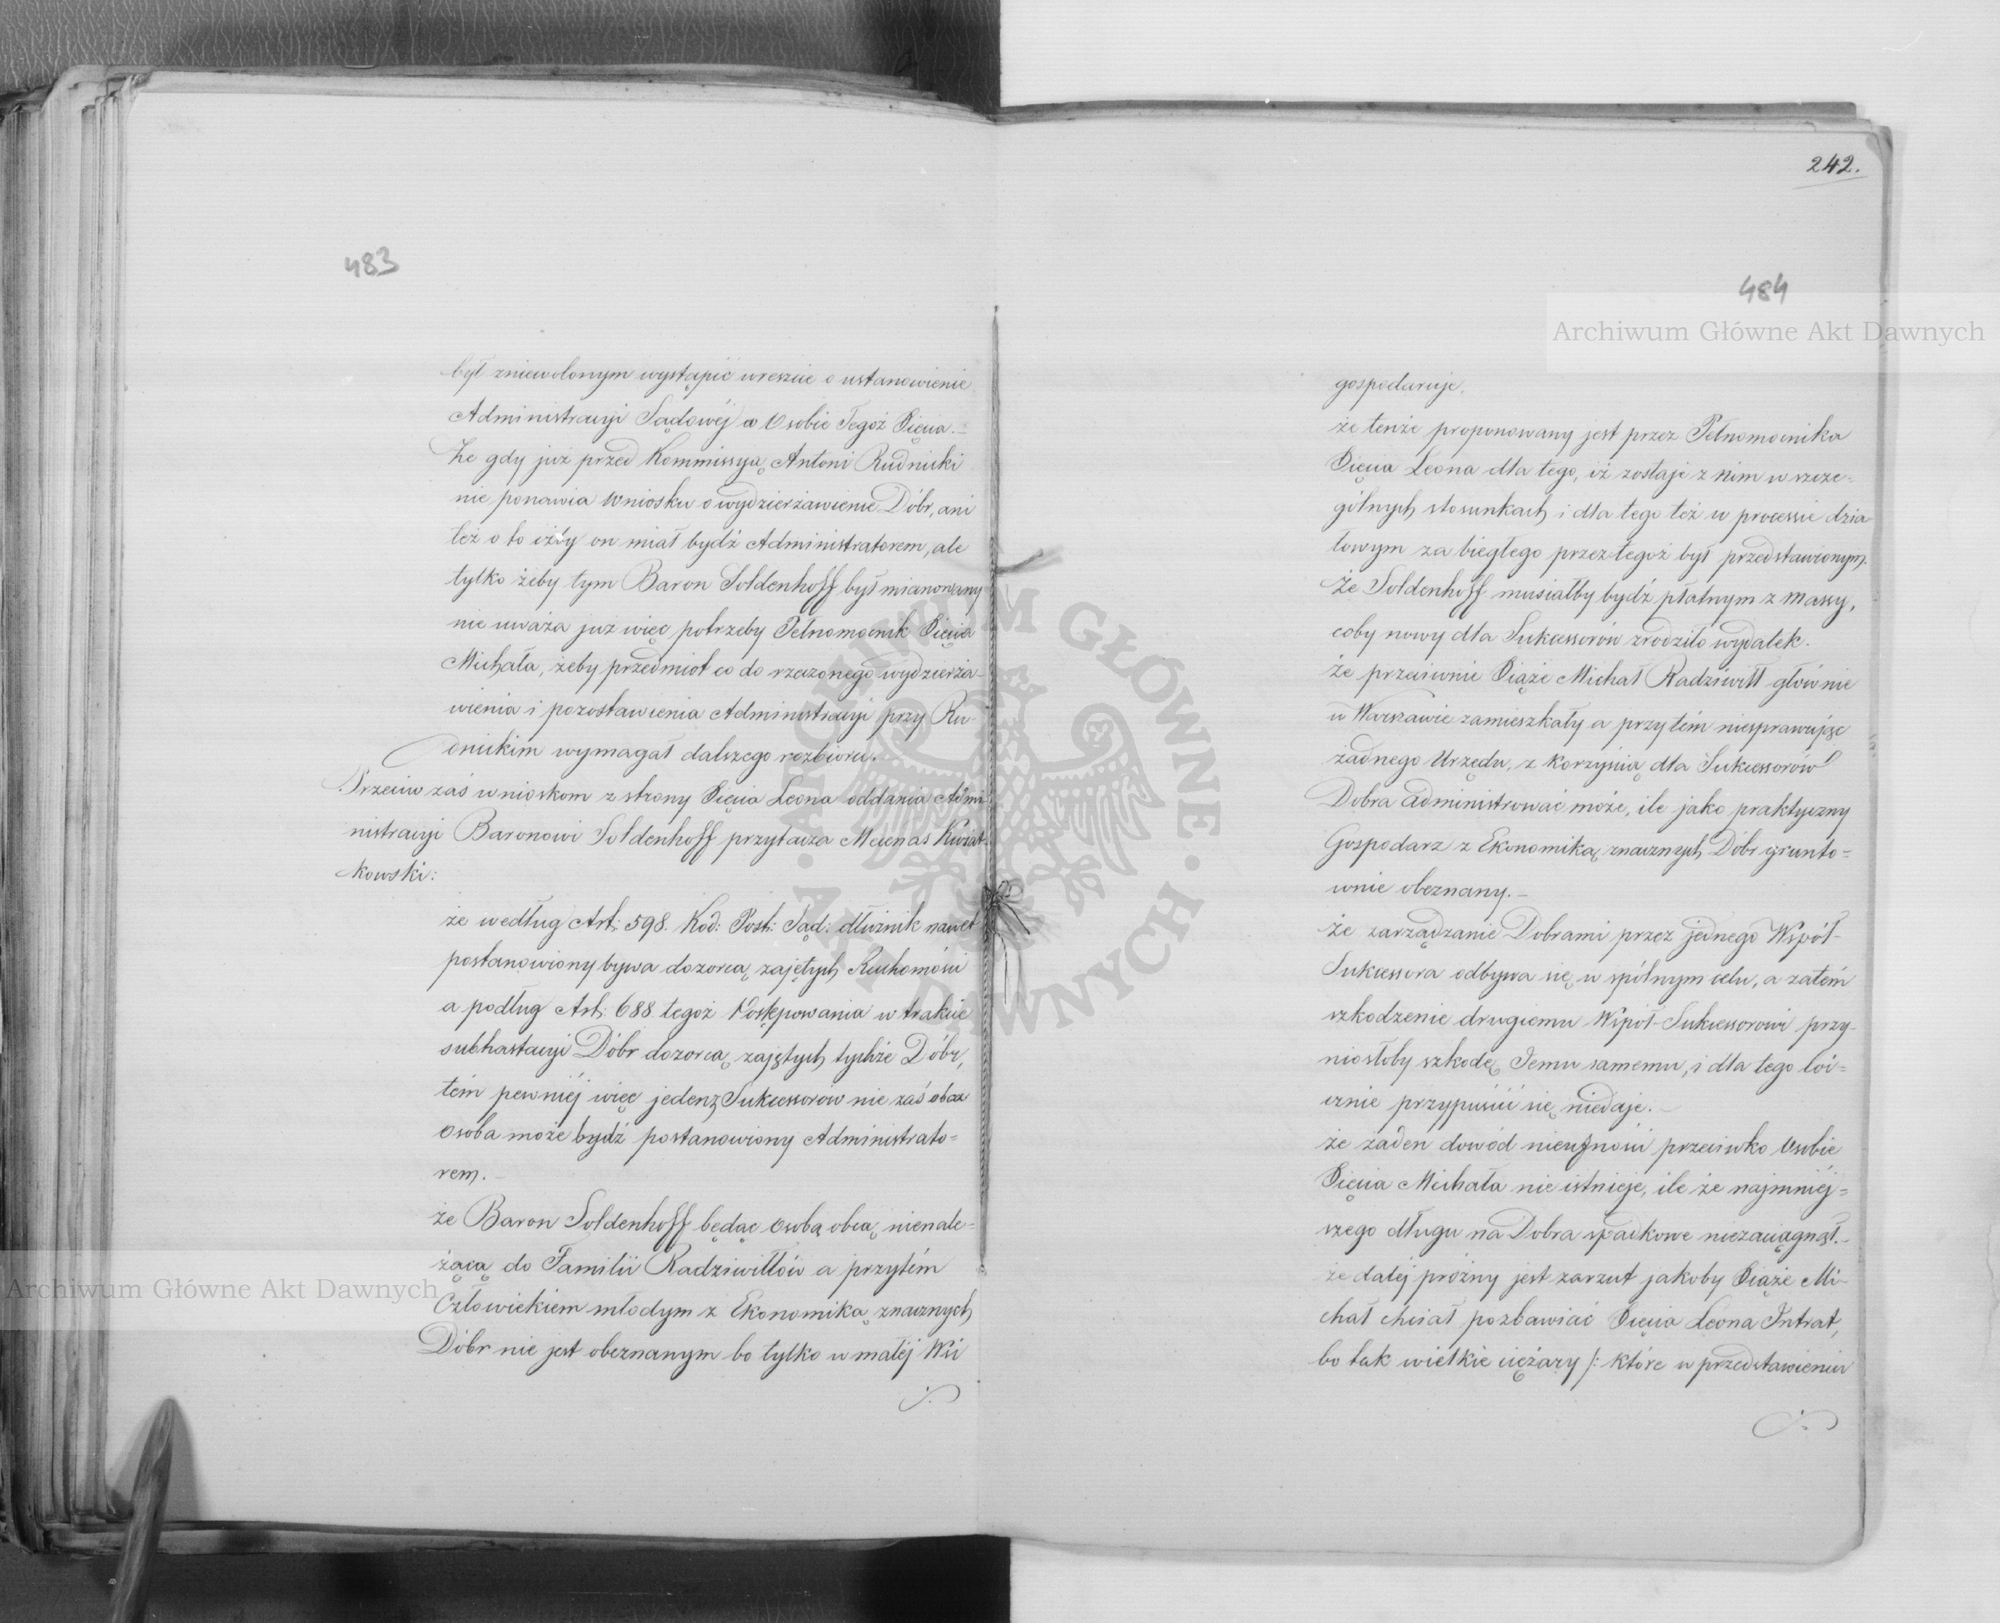 483
był zniewolonym wystąpić wreszcie o ustanowienie
Administracyi Sądowéj w Osobie Tegoż Xięcia.
Że gdy już przed Kommissyą Antoni Rudnicki
nie ponawia wniosku o wydzierżawienie Dóbr, ani
też o to iżby on miał bydź Administratorem, ale
tylko żeby tym Baron Soldenhoff był mianowany
nie uważa już więc potrzeby Pełnomocnik Xięcia
Michała, żeby przedmiot co do rzeczonego wydzierża-
wienia i pozostawienia Administracyi przy Ru-
dnickim wymagał dalszego rozbioru.
Przeciw zaś wnioskom z strony Xięcia Leona oddania Admi-
nistracyi Baronowi Soldenhoff przytacza Mecenas Kwiat-
kowski:
że według Art: 598. Kod: Post: Sąd: dłużnik nawet
postanowiony bywa dozorcą zajętych Ruchomości
a podług Art: 688 tegoż Postępowania w trakcie
subhastacyi Dóbr dozorcą zajętych tychże Dóbr,
tém pewniéj więc jeden z Sukcessorów nie zaś obca
Osoba może bydź postanowiony Administrato=
rem.
że Baron Soldenhoff będąc Osobą obcą, nienale=
żącą do Familii Radziwiłłów a przytém
Człowiekiem młodym z Ekonomiką znacznych
Dóbr nie jest obeznanym bo tylko w małéj Wsi
242.
484
gospodaruje.
że tenże proponowany jest przez Pełnomocnika
Xięcia Leona dla tego, iż zostaje z Nim w szcze=
gólnych stosunkach i dla tego też w processie dzia
łowym za biegłego przez tegoż był przedstawionym.
że Soldenhoff musiałby bydź płatnym z massy,
coby nowy dla Sukcessorów zrodziło wydatek.
że przeciwnie Xiąże Michał Radziwiłł głównie
w Warszawie zamieszkały a przytém niesprawujęc
żadnego Urzędu, z korzyścią dla Sukcessorów
Dobra administrować może, ile jako praktyczny
Gospodarz z Ekonomiką znacznych Dóbr grunto=
wnie obeznany.
że zarządzanie Dobrami przez jednego Współ-
Sukcessora odbywa się w spólnym celu, a zatém
szkodzenie drugiemu Współ-Sukcessorowi przy-
niosłoby szkodę Jemu samemu, i dla tego loi=
cznie przypuścić się niedaje.
że żaden dowód nieufności przeciwko Osobie
Xięcia Michała nie istnieje, ile że najmniéj=
szego długu na Dobra spadkowe niezaciągnął.
że daléj próżny jest zarzut jakoby Xiąże Mi-
chał chciał pozbawiać Xięcia Leona Intrat,
bo tak wielkie ciężary /: które w przedstawieniu
Archiwum Główne Akt Dawnych
Archiwum Główne Akt Dawnych
ARCHIWUM GŁÓWNE · AKT DAWNYCH ·